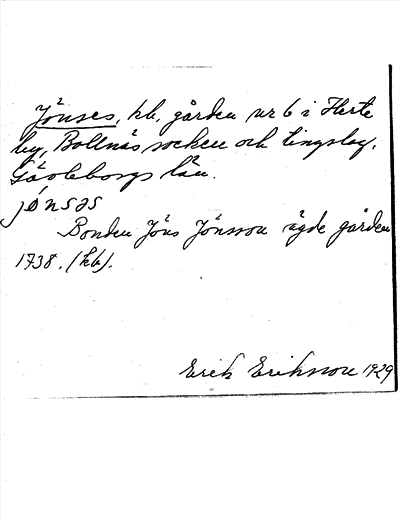 Jönses, kb, gården nr 6 i Herte
by, Bollnäs socken och tingslag,
Gävleborgs län.
jønsəs
Bonden Jöns Jönsson ägde gården
1738. (kb).
Erik Eriksson 1929